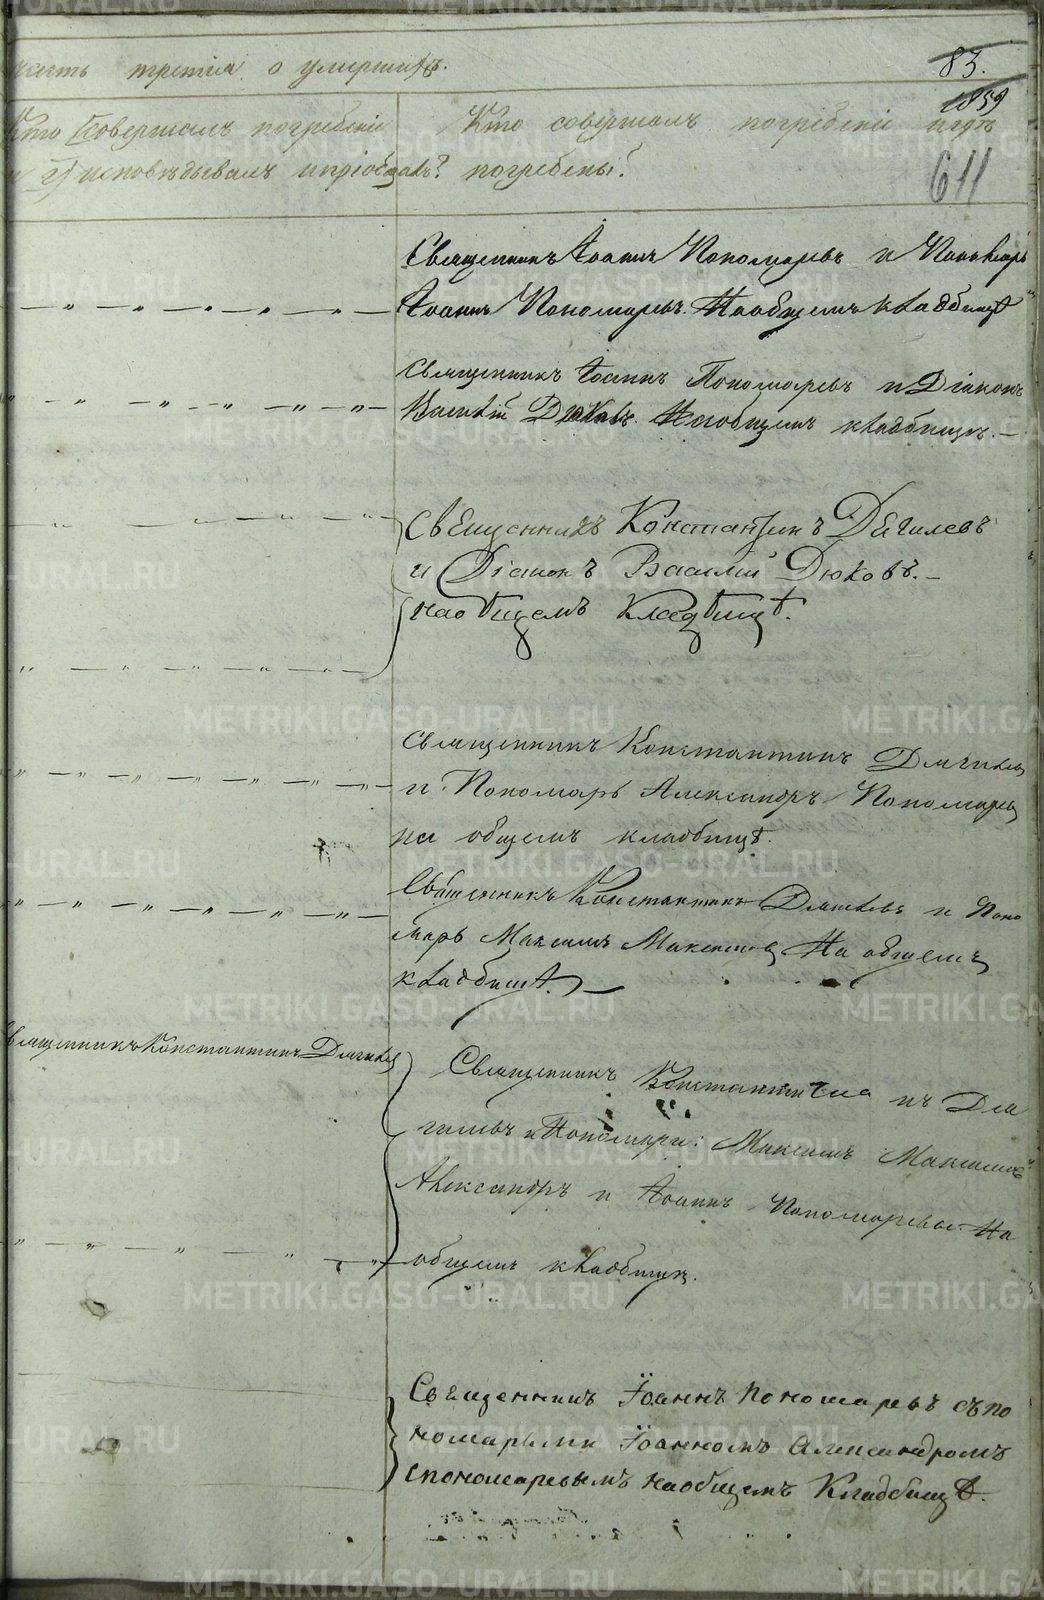 часть третiя о умершихъ.
83.
1859
611
Кто совершалъ погребенiе
и исповѣдывалъ и прiобщалъ?
Кто совершалъ погребенiе и гдѣ
погребены?
Священникъ Iоаннъ Пономаревъ и Пономарь
Iоаннъ Пономаревъ. На общемъ кладбищѣ
Священникъ Iоаннъ Пономаревъ и Дiаконъ
Василiй Дюковъ. На общемъ кладбищѣ.
Священникъ Константинъ Дягилевъ
и Дiаконъ Василiй Дюковъ.
на общемъ Кладбищѣ.
Священникъ Константинъ Дягилевъ
и Пономарь Александръ Пономаревъ
на общемъ кладбищѣ.
Священникъ Константинъ Дягилевъ и Поно
марь Максимъ Максимовъ На общемъ
кладбищѣ.
Священникъ Константинъ Дягилевъ
Священникъ Константинъ Дя
гилевъ и Пономари: Максимъ Максимовъ
Александръ и Iоаннъ Пономаревы. На
общемъ кладбищѣ.
Священникъ Iоаннъ Пономаревъ съ по
номарями Iоанномъ Александромъ
Спономаревымъ на общемъ Кладбищѣ.
METRIKI.GASO-URAL.RU